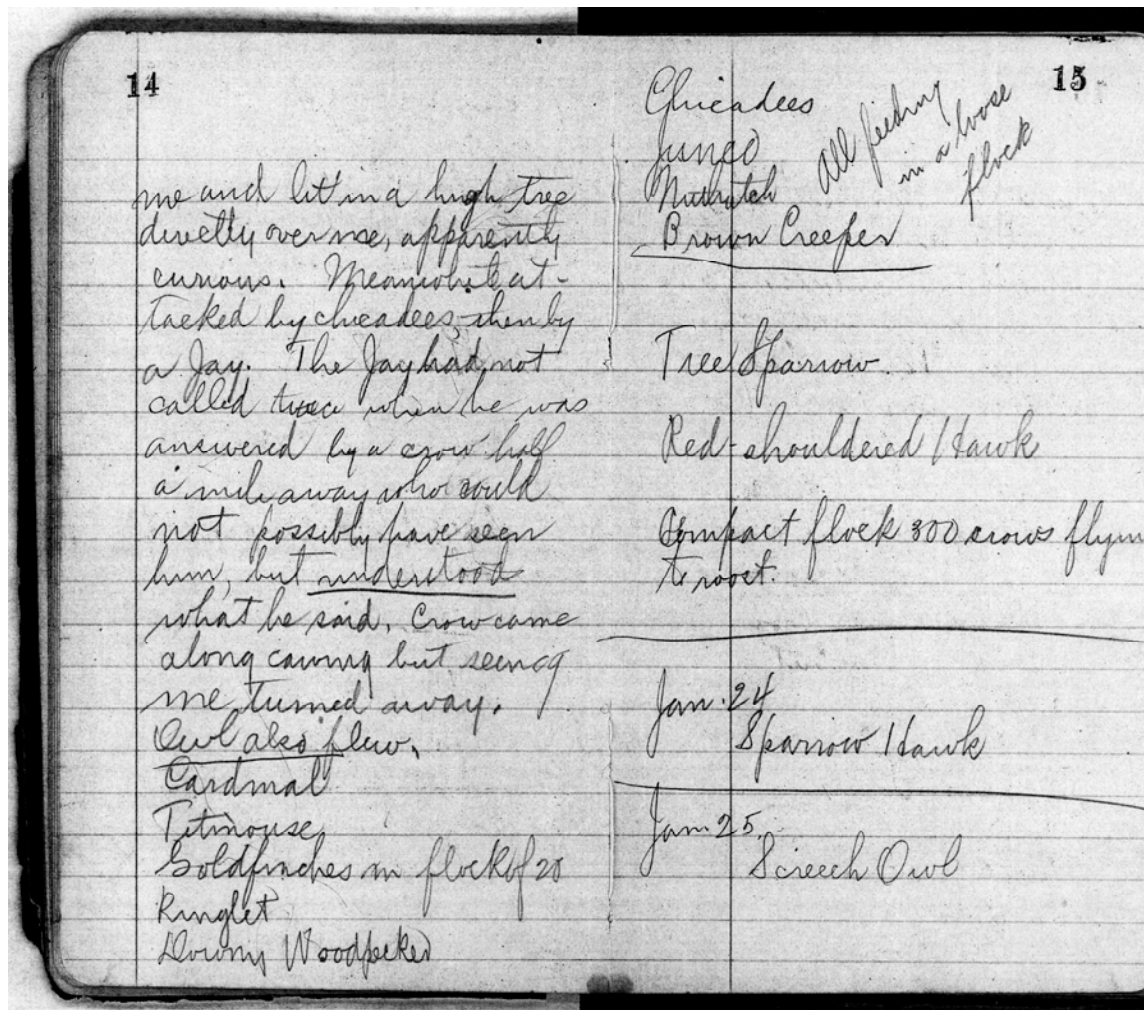 14
me and lit in a high tree
directly over me, apparently
curious. Meanwhile at-
tacked by chicadees then by
a Jay. The Jay had not
called twice when he was
answered by a crow half
a mile away who could
not possibly have seen
him, but understood
what he said. Crow came
along cawing but seeing
me turned away.
Owl also flew.
Cardinal
Titmouse
Goldfinches in flock of 20
Kinglet
Downy Woodpecker
15
Chicadees
Junco
Nuthatch
Brown Creeper
All feeding
in a loose
flock
Tree Sparrow
Red-shouldered Hawk
Compact flock 300 crows flyin
to roost.
Jan. 24
Sparrow Hawk
Jan. 25.
Screech Owl